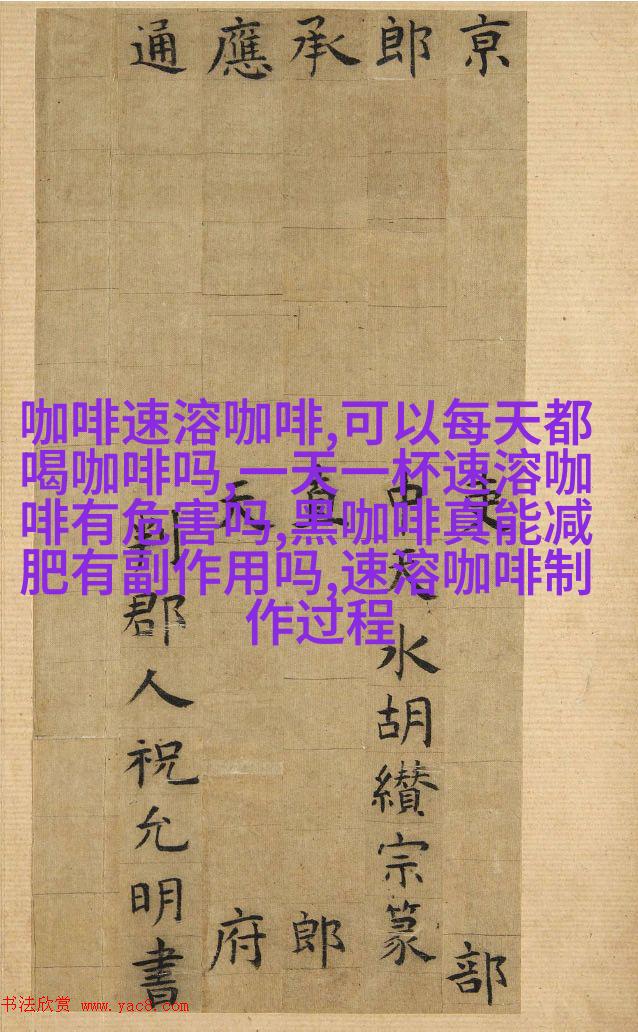 咖啡速溶咖啡,可以每天都
喝咖啡吗,一天一杯速溶咖
啡有危害吗,黑咖啡真能减
肥有副作用吗,速溶咖啡制
作过程
京吏部
郎中天水胡纘宗篆
承直郎
應天府
通判郡人祝允明書
书法欣赏 www.yac8.com